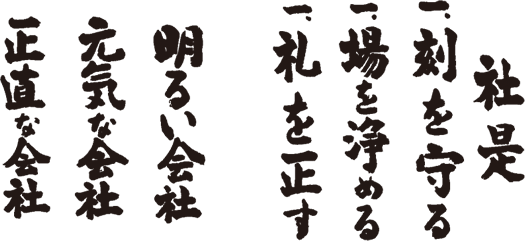 社是
一、刻を守る
一、場を浄める
一、礼を正す
明るい会社
元気な会社
正直な会社